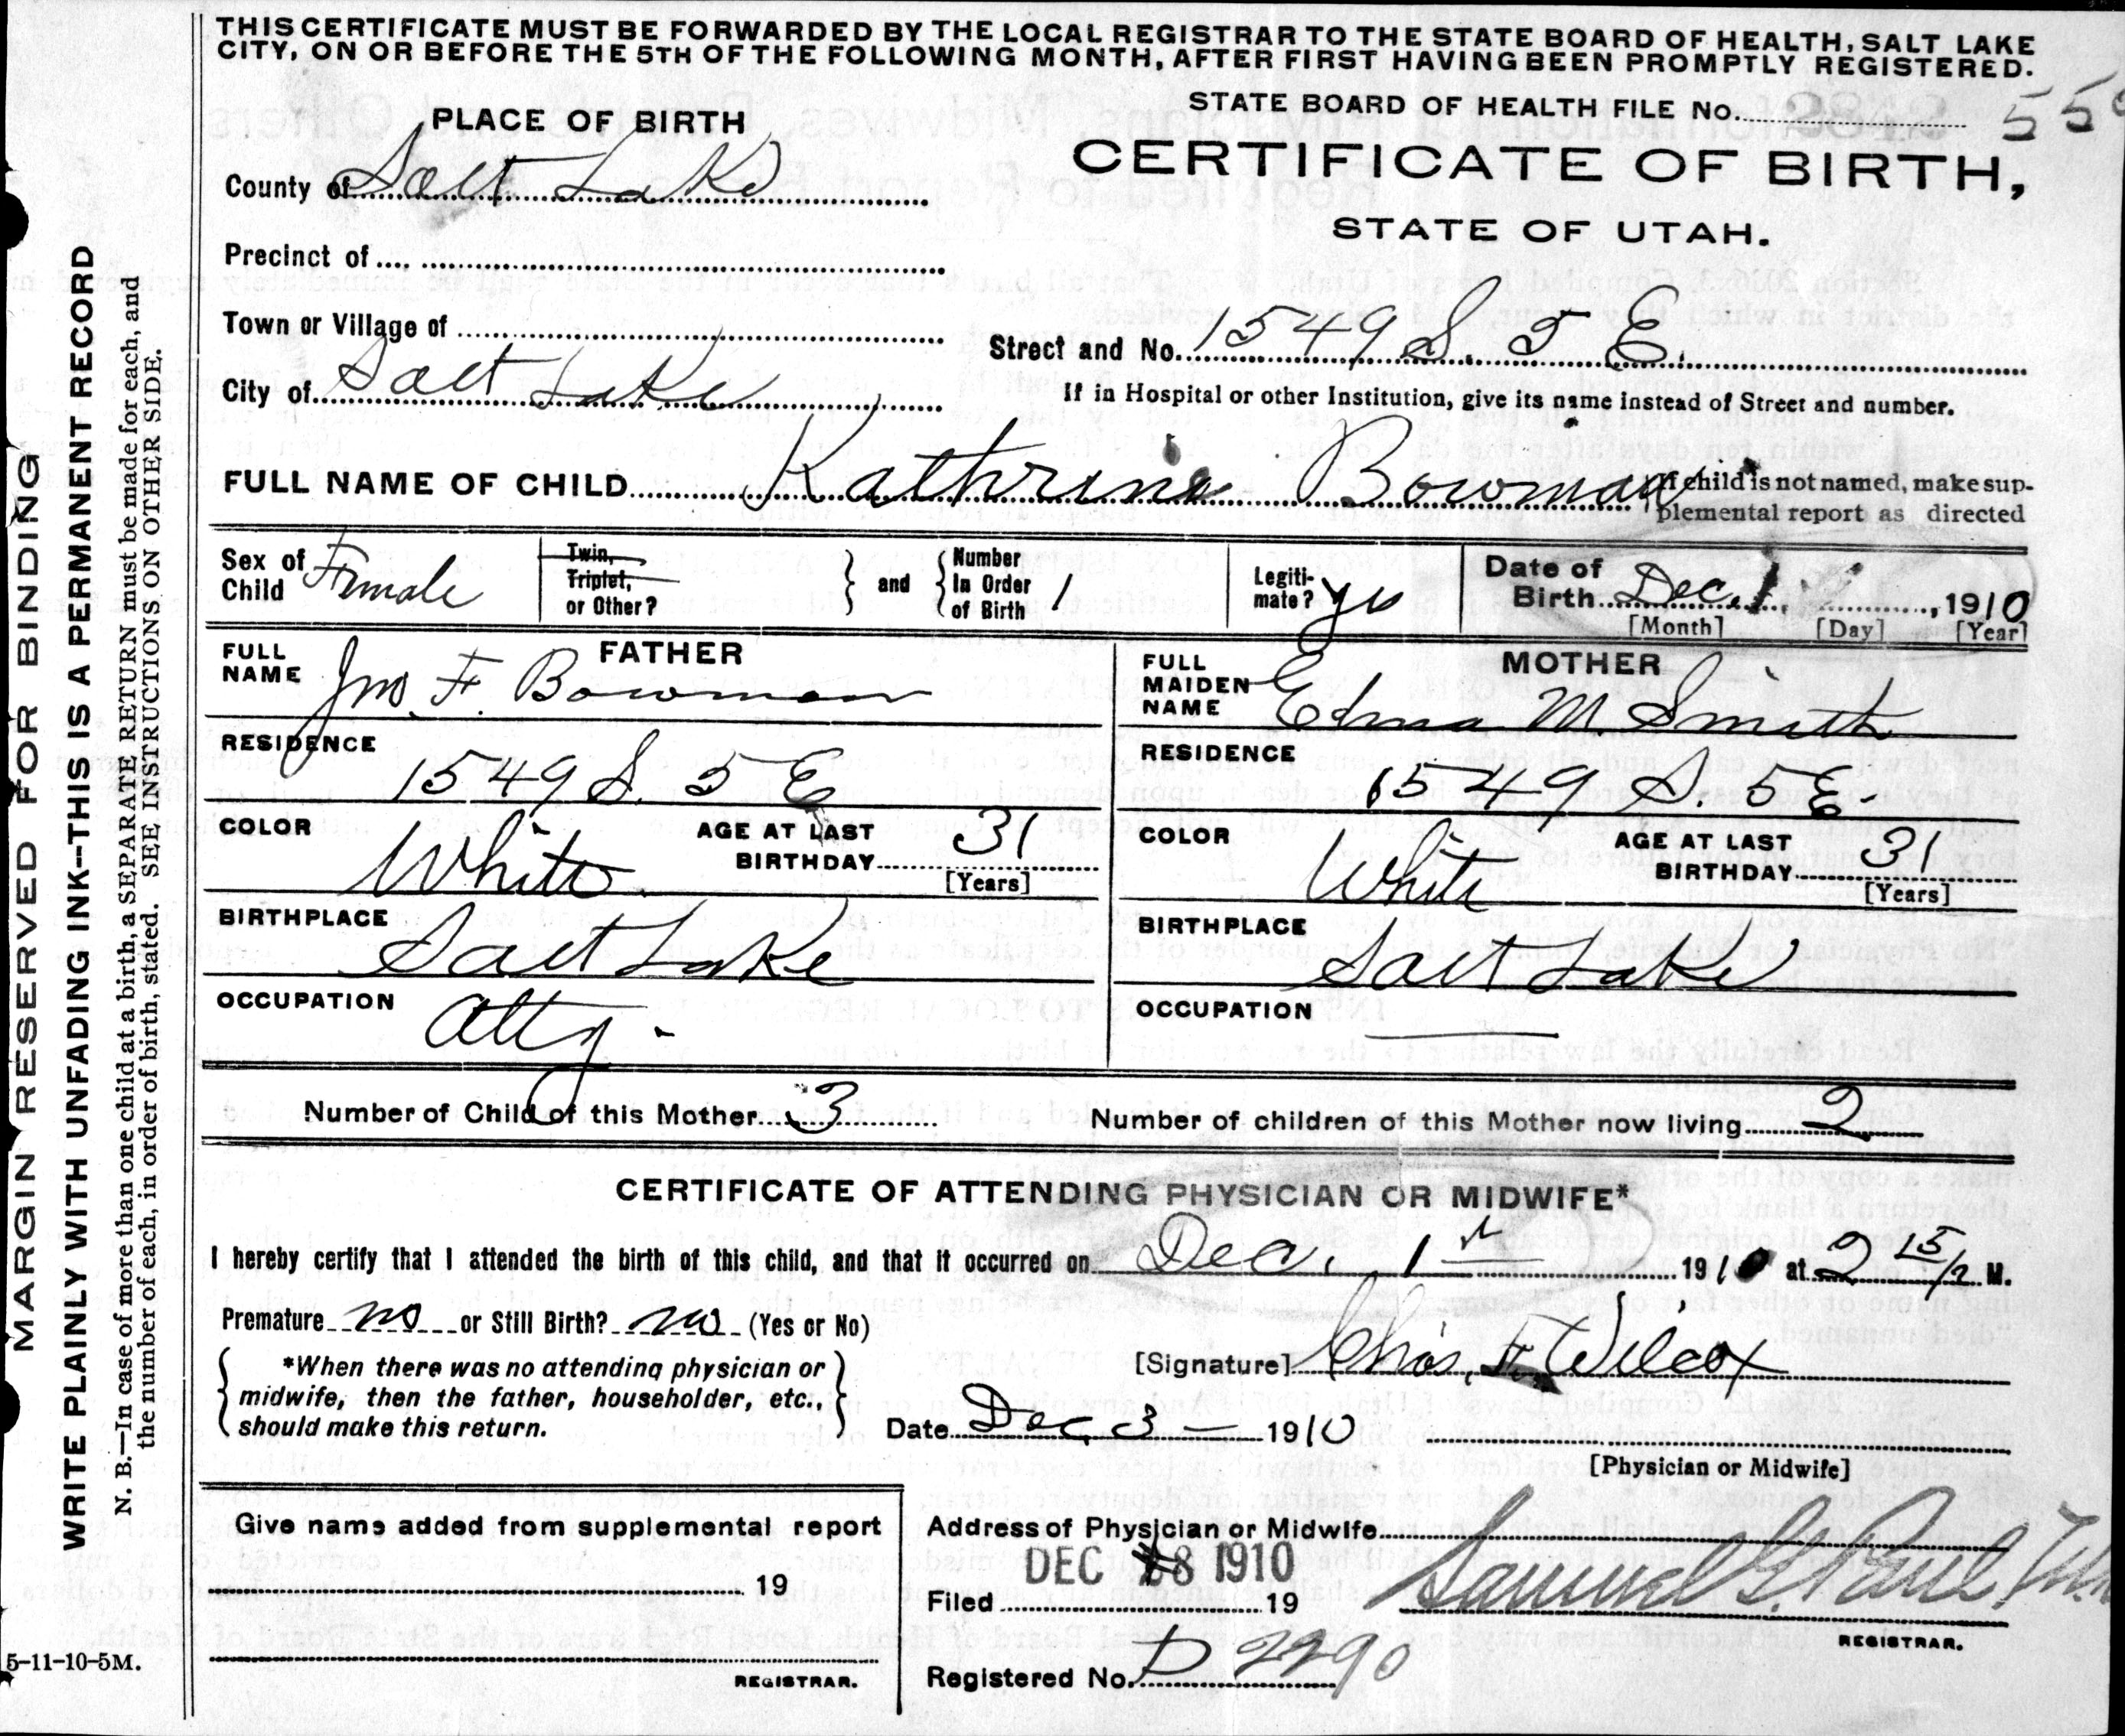 THIS CERTIFICATE MUST BE FORWARDED BY THE LOCAL REGISTRAR TO THE STATE BOARD OF HEALTH, SALT LAKE
CITY, ON OR BEFORE THE 5TH OF THE FOLLOWING MONTH, AFTER FIRST HAVING BEEN PROMPTLY REGISTERED.
STATE BOARD OF HEALTH FILE No.
PLACE OF BIRTH
CERTIFICATE OF BIRTH,
STATE OF UTAH.
County of Salt Lake
Precinct of
Town or Village of
Street and No. 1549 S. 5 E.
City of Salt Lake
If in Hospital or other Institution, give its name instead of Street and number.
FULL NAME OF CHILD Kathrine Bowman
If child is not named, make sup-
plemental report as directed
Sex of Child Female
Twin, Triplet, or Other?
and
Number In Order of Birth 1
Legiti-mate? yes
Date of Birth Dec. 1, 1910
[Month] [Day] [Year]
FATHER
FULL NAME Jno. F. Bowman
RESIDENCE
1549 S. 5 E
COLOR White
AGE AT LAST BIRTHDAY 31
[Years]
BIRTHPLACE
Salt Lake
OCCUPATION Atty.
MOTHER
FULL MAIDEN NAME Edna M. Smith
RESIDENCE
1549 S. 5 E.
COLOR White
AGE AT LAST BIRTHDAY 31
[Years]
BIRTHPLACE
Salt Lake
OCCUPATION
Number of Child of this Mother 3
Number of children of this Mother now living 2
CERTIFICATE OF ATTENDING PHYSICIAN OR MIDWIFE*
I hereby certify that I attended the birth of this child, and that it occurred on Dec. 1st 1910 at 2 15 M.
Premature no or Still Birth? no (Yes or No)
*When there was no attending physician or
midwife, then the father, householder, etc.,
should make this return.
[Signature] Chas. F. Wilcox
Date Dec. 3 — 1910
[Physician or Midwife]
Give name added from supplemental report
19
REGISTRAR.
Address of Physician or Midwife
DEC 8 1910
Filed 19
Samuel G. Paul
REGISTRAR.
Registered No. D 2290
MARGIN RESERVED FOR BINDING
WRITE PLAINLY WITH UNFADING INK--THIS IS A PERMANENT RECORD
N. B.—In case of more than one child at a birth, a SEPARATE RETURN must be made for each, and
the number of each, in order of birth, stated. SEE INSTRUCTIONS ON OTHER SIDE.
5-11-10-5M.